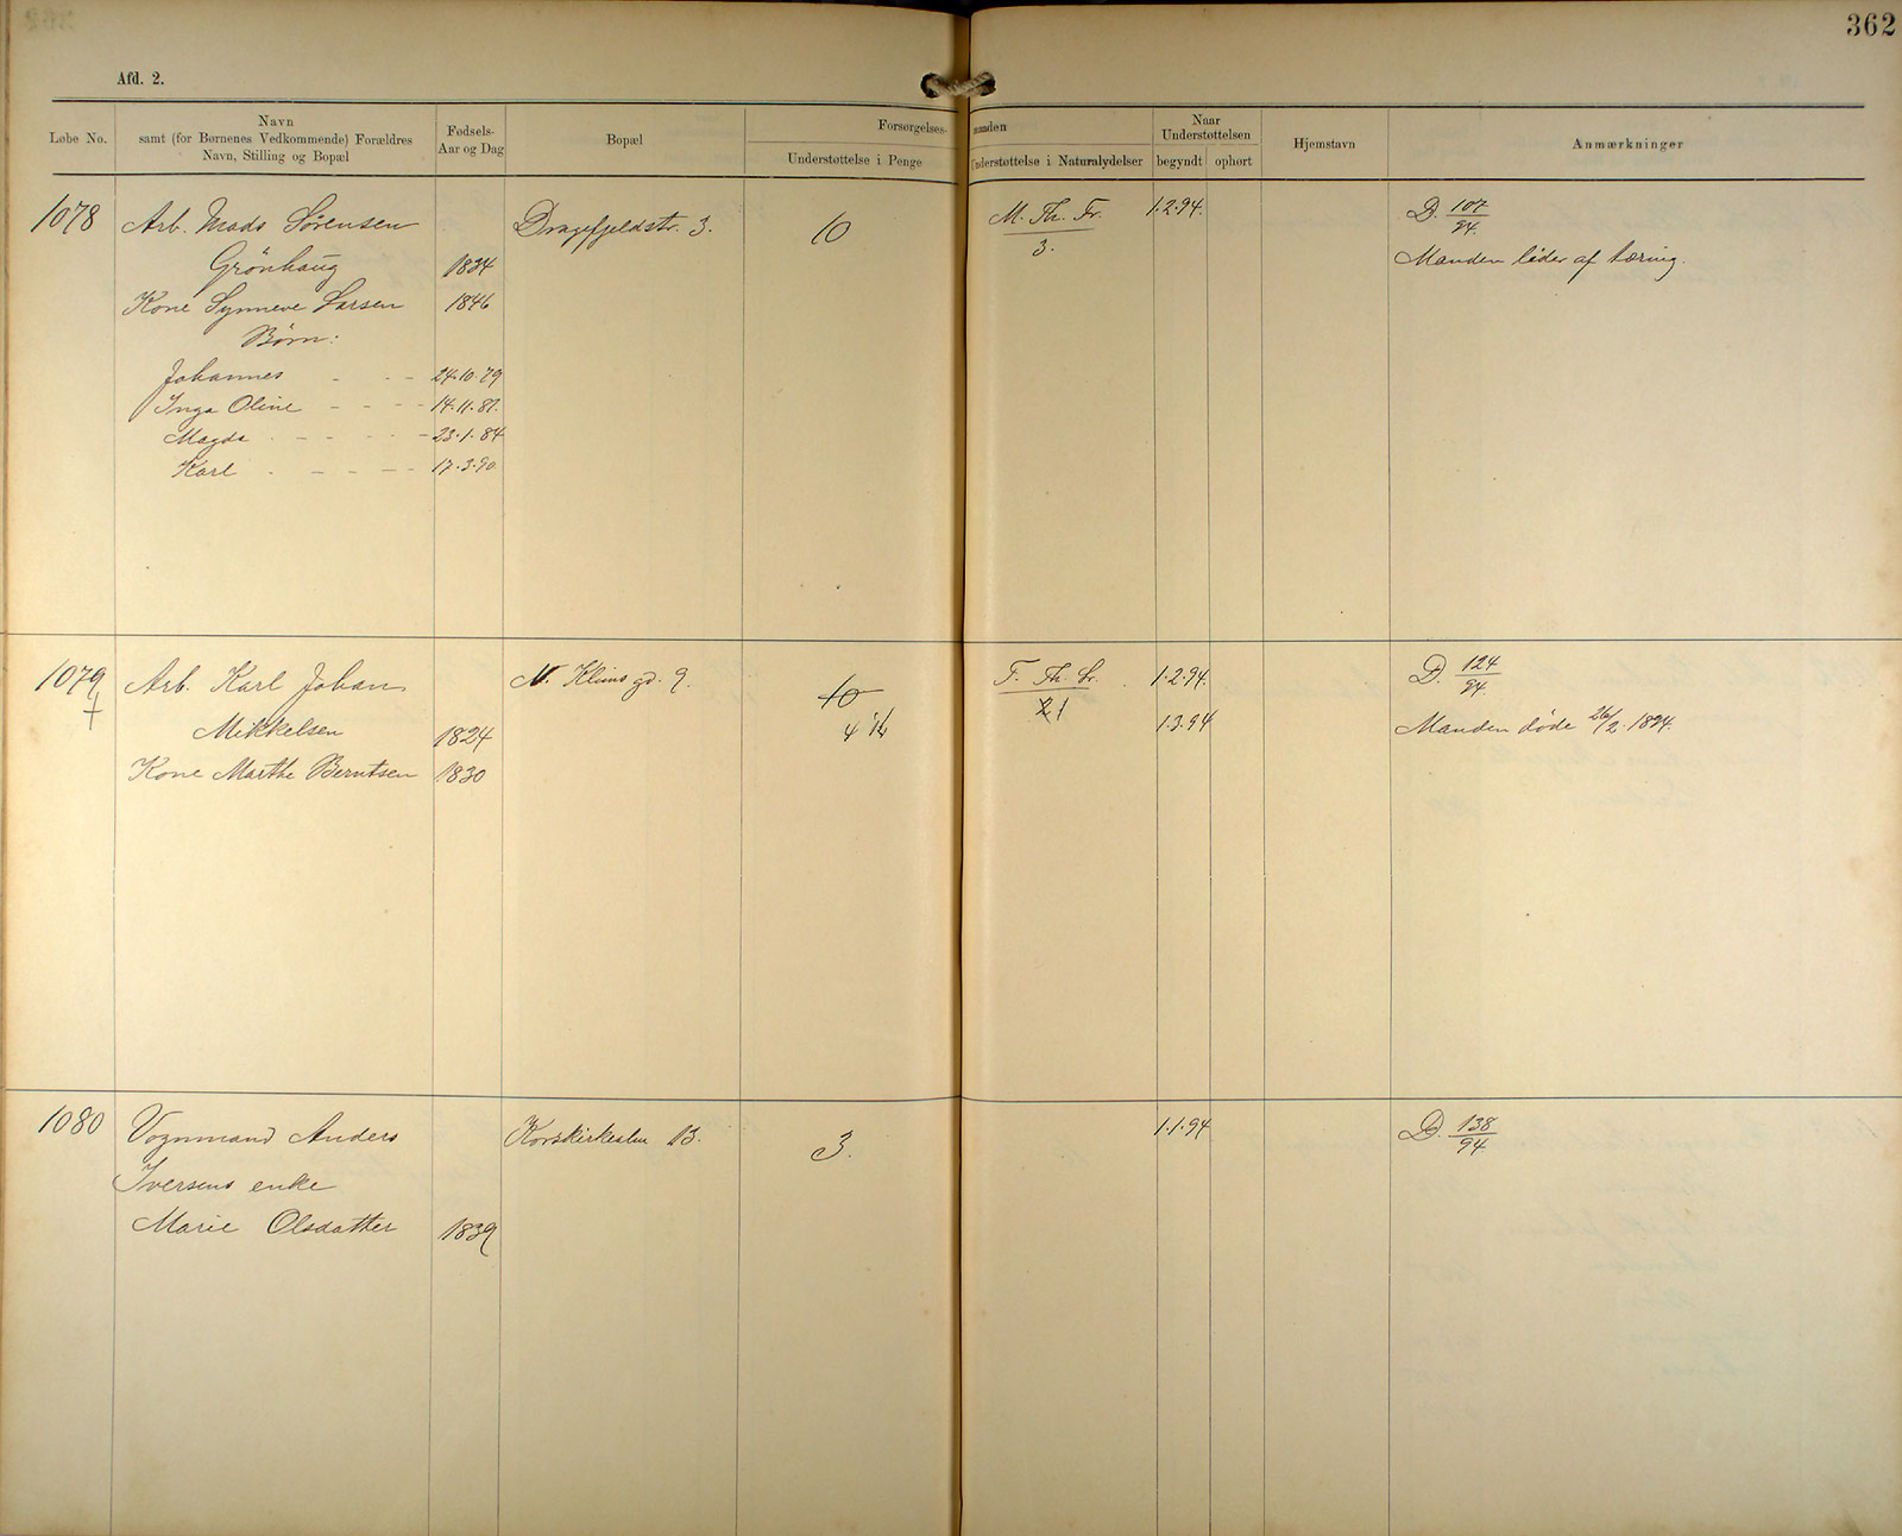 362
Afd. 2.
Løbe No.
Navn
samt (for Børnenes Vedkommende) Forældres
Navn, Stilling og Bopæl
Fødsels-
Aar og Dag
Bopæl
Forsørgelses-
maaden
Understøttelse i Penge
Understøttelse i Naturalydelser
Naar
Understøttelsen
begyndt
ophørt
Hjemstavn
Anmærkninger
1078 Arb. Mads Sörensen Dragefjeldstr. 3. 10 M. Th. Fr. 1.2.94. D. 107/94.
Grönhaug 1834 3. Manden lider af tæring.
Kone Synneve Larsen 1846
Børn:
Johannes - - - 24.10.79
Inga Oline - - - 14.11.81.
Magda - - - - 23.1.84
Karl - - - - 17.3.90
1079 Arb. Karl Johan N. Klims gd. 9. 10 F. Th. Lr. 1.2.94. D. 124/94.
† Mikkelsen 1824 4 1 1.3.94 Manden døde 26/2 1894.
Kone Marthe Berntsen 1830
1080 Vognmand Anders Korskirkealm 13. 3. 1.1.94 D. 138/94
Iversens enke
Marie Olsdatter 1839